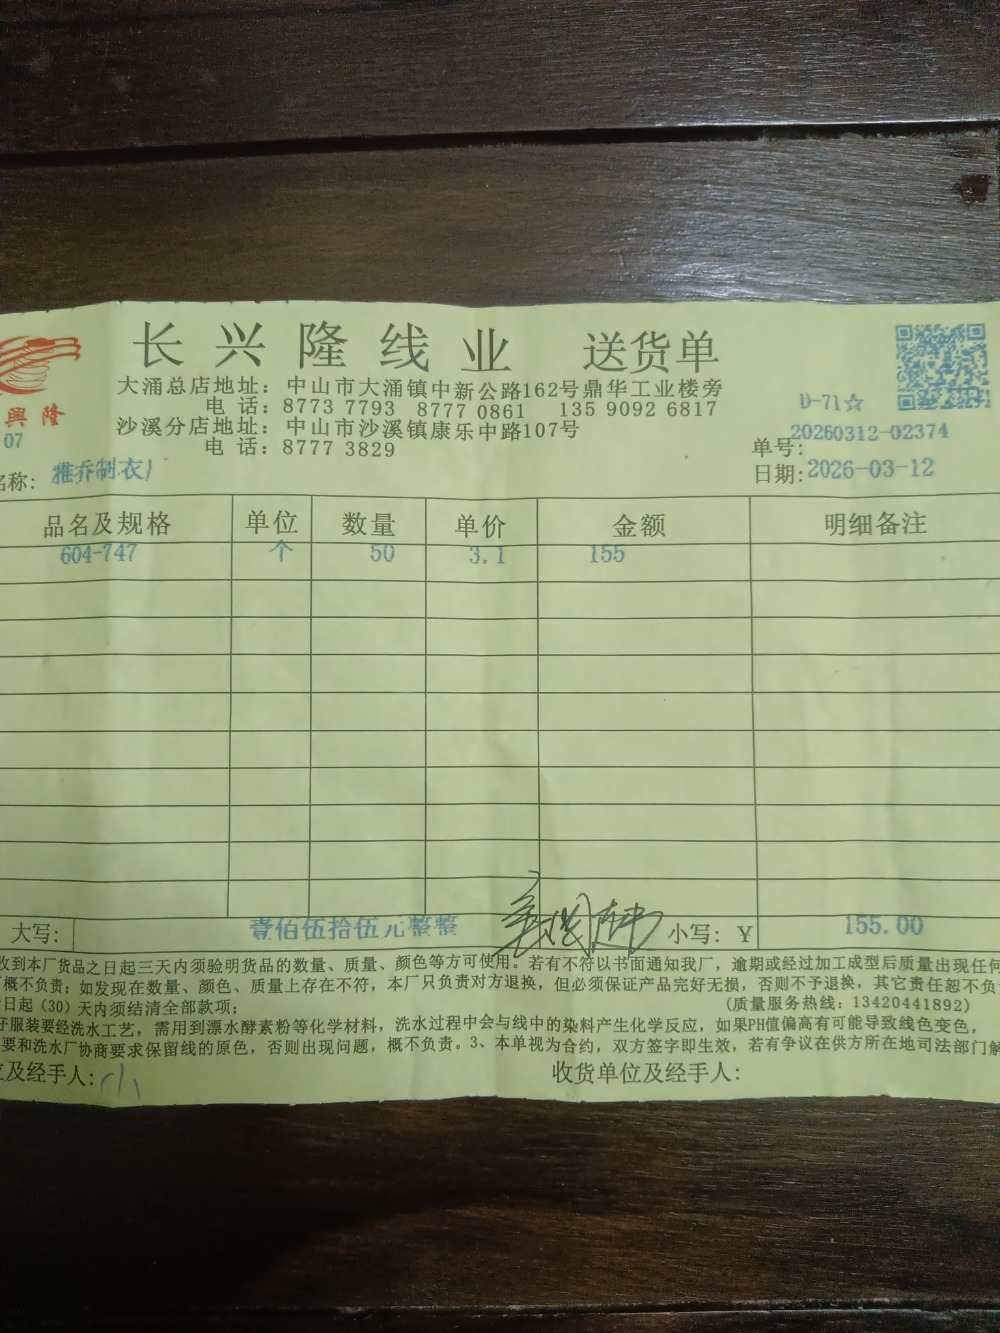 长兴隆线业 送货单
興隆
大涌总店地址：中山市大涌镇中新公路162号鼎华工业楼旁
电 话：8773 7793 8777 0861 135 9092 6817
D-71☆
沙溪分店地址：中山市沙溪镇康乐中路107号
07
电 话：8777 3829
单号：20260312-02374
名称：雅乔制衣厂
日期：2026-03-12
品名及规格 单位 数量 单价 金额 明细备注
604-747 个 50 3.1 155
大写：壹佰伍拾伍元整整 小写：￥ 155.00
收到本厂货品之日起三天内须验明货品的数量、质量、颜色等方可使用。若有不符以书面通知我厂，逾期或经过加工成型后质量出现任何
概不负责；如发现在数量、颜色、质量上存在不符，本厂只负责对方退换，但必须保证产品完好无损，否则不予退换，其它责任恕不负
日起（30）天内须结清全部款项； （质量服务热线：13420441892）
服装要经洗水工艺，需用到漂水酵素粉等化学材料，洗水过程中会与线中的染料产生化学反应，如果PH值偏高有可能导致线色变色，
要和洗水厂协商要求保留线的原色，否则出现问题，概不负责。3、本单视为合约，双方签字即生效，若有争议在供方所在地司法部门解
及经手人： 收货单位及经手人：